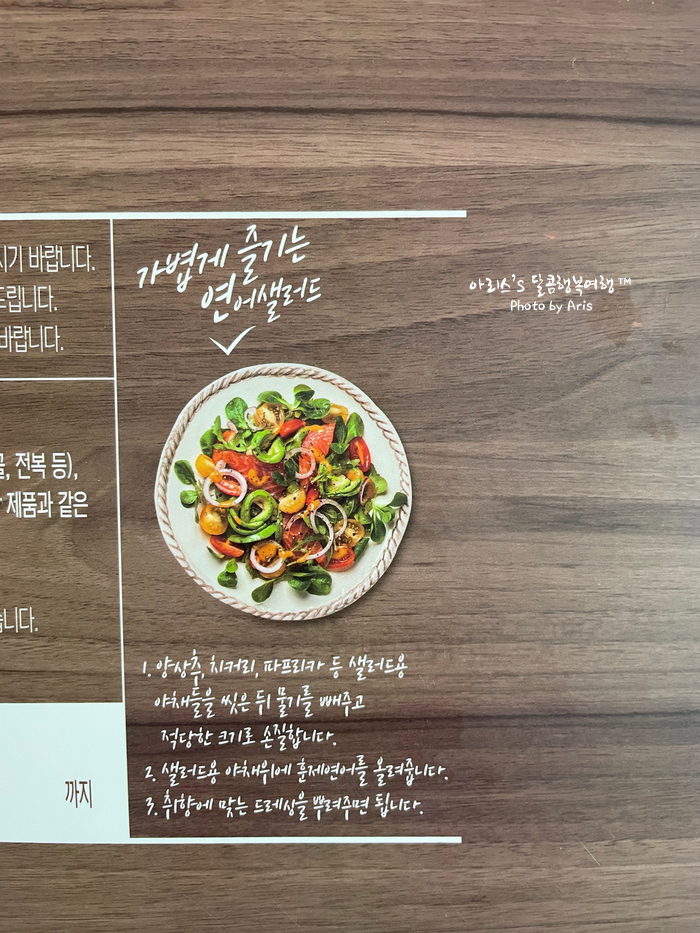 시기 바랍니다.
드립니다.
바랍니다.
전복 등),
제품과 같은
습니다.
까지
가볍게 즐기는
연어샐러드
1. 양상추, 치커리, 파프리카 등 샐러드용
야채들을 씻은 뒤 물기를 빼주고
적당한 크기로 손질합니다.
2. 샐러드용 야채위에 훈제연어를 올려줍니다.
3. 취향에 맞는 드레싱을 뿌려주면 됩니다.
아리스's 달콤행복여행™
Photo by Aris